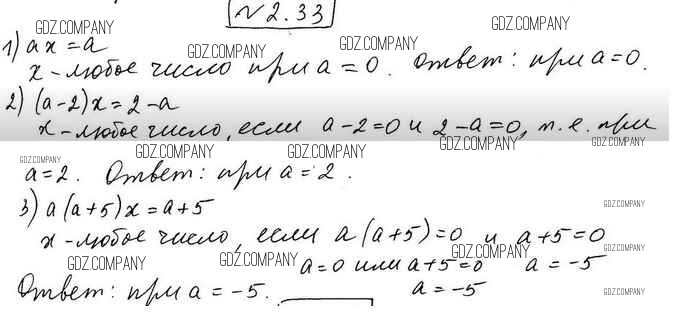 №2.33
GDZ.COMPANY
1) ax = a
GDZ.COMPANY GDZ.COMPANY GDZ.COMPANY
x - любое число при a = 0. Ответ: при a = 0.
GDZ.COMPANY GDZ.COMPANY
2) (a-2)x = 2-a
x - любое число, если a-2=0 и 2-a=0, т.е. при
GDZ.COMPANY GDZ.COMPANY GDZ.COMPANY GDZ.COMPANY GDZ.COMPANY
a=2. Ответ: при a = 2.
GDZ.COMPANY GDZ.COMPANY GDZ.COMPANY
3) a(a+5)x = a+5
x - любое число, если a(a+5)=0 и a+5=0
GDZ.COMPANY GDZ.COMPANY GDZ.COMPANY GDZ.COMPANY
a=0 или a+5=0 a = -5
Ответ: при a = -5. a = -5
GDZ.COMPANY